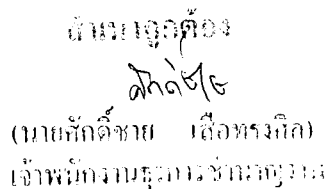 สำเนาถูกต้อง
ศักดิ์ชัย
(นายศักดิ์ชาย เสือทรงศิล)
เจ้าพนักงานธุรการชำนาญงาน